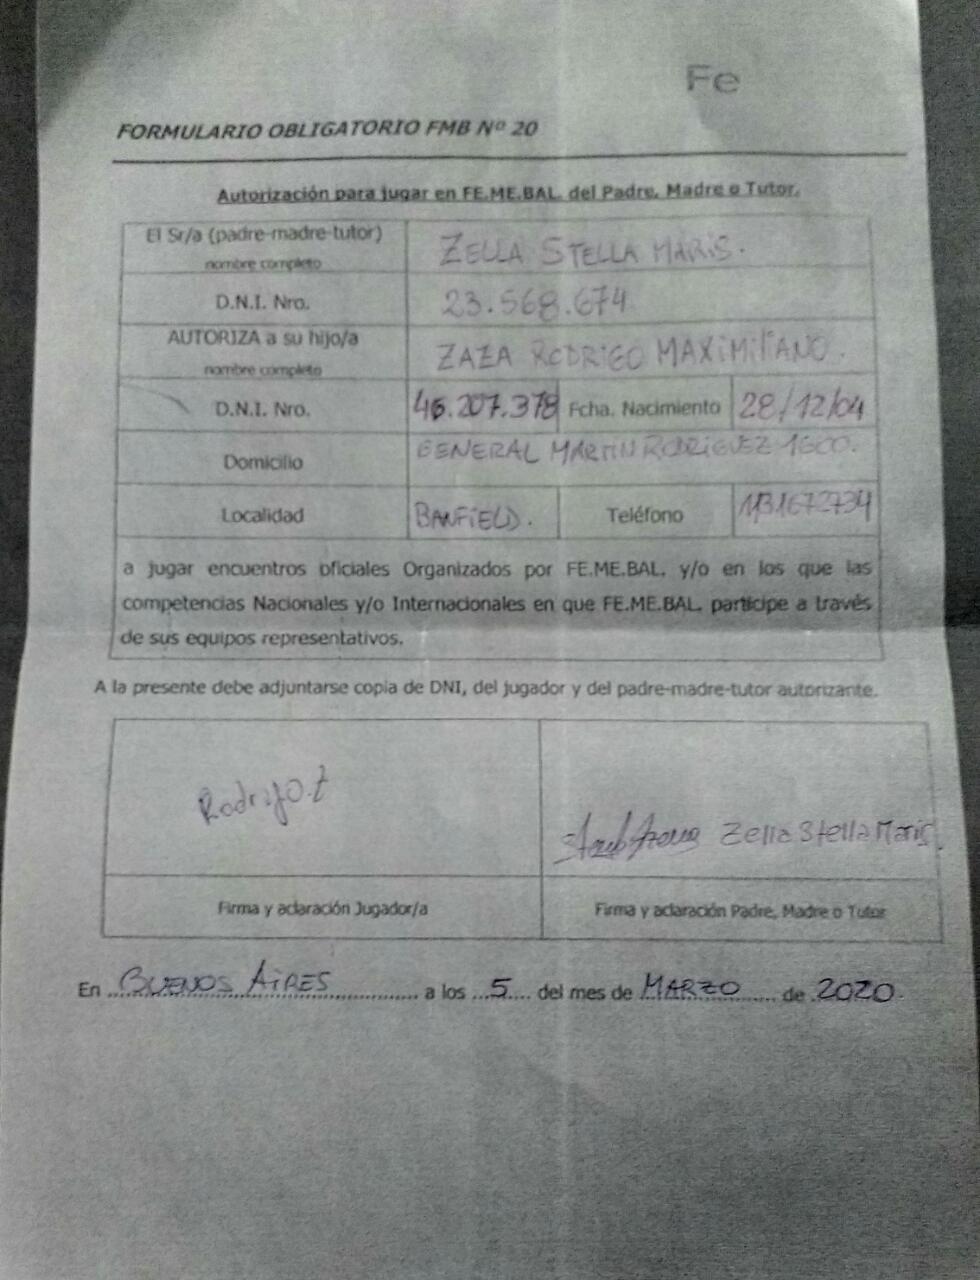 Fe
FORMULARIO OBLIGATORIO FMB Nº 20
Autorización para jugar en FE.ME.BAL. del Padre, Madre o Tutor.
El Sr/a (padre-madre-tutor) nombre completo ZELLA STELLA MARIS.
D.N.I. Nro. 23.568.674
AUTORIZA a su hijo/a nombre completo ZAZA RODRIGO MAXIMILIANO.
D.N.I. Nro. 46.207.378 Fcha. Nacimiento 28/12/04
Domicilio GENERAL MARTIN RODRIGUEZ 1600.
Localidad BANFIELD. Teléfono 1131672734
a jugar encuentros oficiales Organizados por FE.ME.BAL. y/o en los que las
competencias Nacionales y/o Internacionales en que FE.ME.BAL. participe a través
de sus equipos representativos.
A la presente debe adjuntarse copia de DNI, del jugador y del padre-madre-tutor autorizante.
Rodrigo.Z
Zella Stella Maris.
Firma y aclaración Jugador/a Firma y aclaración Padre, Madre o Tutor
En BUENOS AIRES a los 5 del mes de MARZO de 2020.